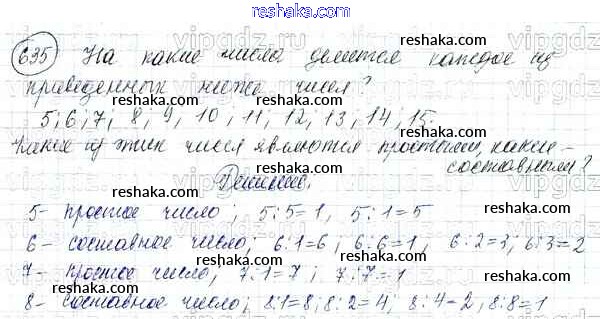 reshaka.com
635 На какие числа делится каждое из
приведенных ниже чисел?
5; 6; 7; 8; 9, 10, 11, 12, 13, 14, 15.
Какие из этих чисел являются простыми, какие -
составными?
Решение.
5- простое число; 5:5=1, 5:1=5
6- составное число; 6:1=6; 6:6=1, 6:2=3, 6:3=2
7- простое число, 7:1=7; 7:7=1
8- составное число; 8:1=8; 8:2=4; 8:4=2, 8:8=1